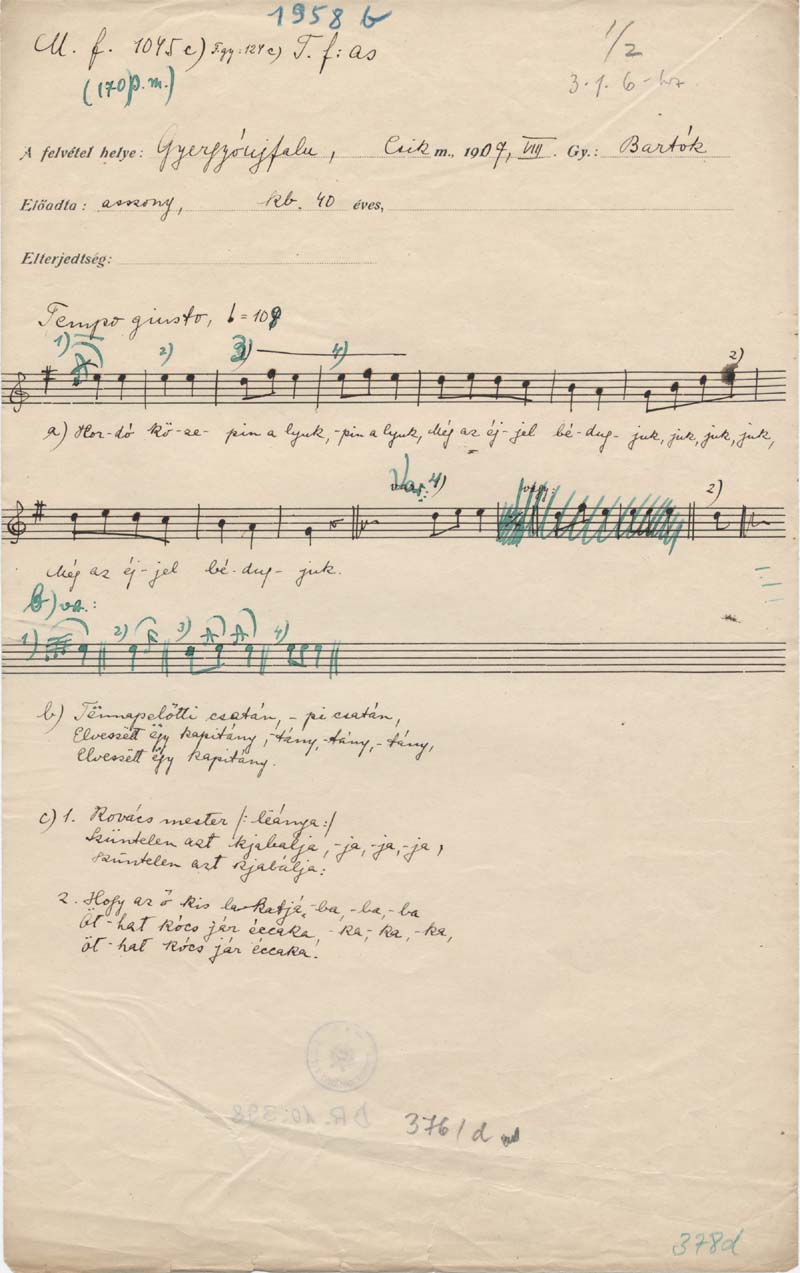 1958 b
M. f. 1045 c) Fgy: 124 c) T. f: as
1/2
(170 p.m.)
3. 1. 6
A felvétel helye: Gyergyóújfalu, Csik m., 1907, VIII. Gy.: Bartók
Előadta: asszony, kb. 40 éves,
Elterjedtség:
Tempo giusto, = 108
1) 2) 3) 4) 2)
a) Hor-dó kö-ze- pin a lyuk, -pin a lyuk, Még az éj-jel bé-dug- juk, juk, juk, juk,
Var. 4) vagy: 2)
Még az éj-jel bé-dug- juk.
b) va.:
1) 2) 3) 4)
b) Tënnapelőtti csatán, - pi csatán,
Elveszëtt ëgy kapitány, -tány, -tány, -tány,
Elveszëtt ëgy kapitány.
c) 1. Kovács mester /: leánya :/
Szüntelen azt kjabálja, -ja, -ja, -ja,
Szüntelen azt kjabálja:
2. Hogy az ő kis lakatjá, -ba, -ba, -ba
Öt-hat kócs jár éccaka, -ka, -ka, -ka,
öt-hat kócs jár éccaka!
DR. 10.398
376/d
378d